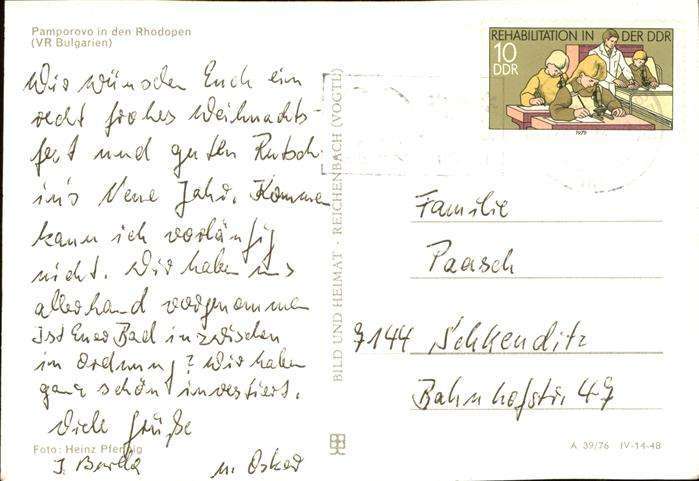 Pamporovo in den Rhodopen
(VR Bulgarien)
Wir wünschen Euch ein
recht frohes Weihnachts-
fest und guten Rutsch
ins Neue Jahr. Kommen
kann ich vorläufig
nicht. Wir haben uns
allerhand vorgenommen
Ist Euer Bad inzwischen
in Ordnung? Wir haben
ganz schön investiert.
Viele Grüße
Foto: Heinz Pfennig
u. Oskar
BILD UND HEIMAT · REICHENBACH (VOGTL)
REHABILITATION IN DER DDR
10
DDR
1979
Familie
Paasch
7144 Schkeuditz
Bahnhofstr. 47
A 39/76 IV-14-48